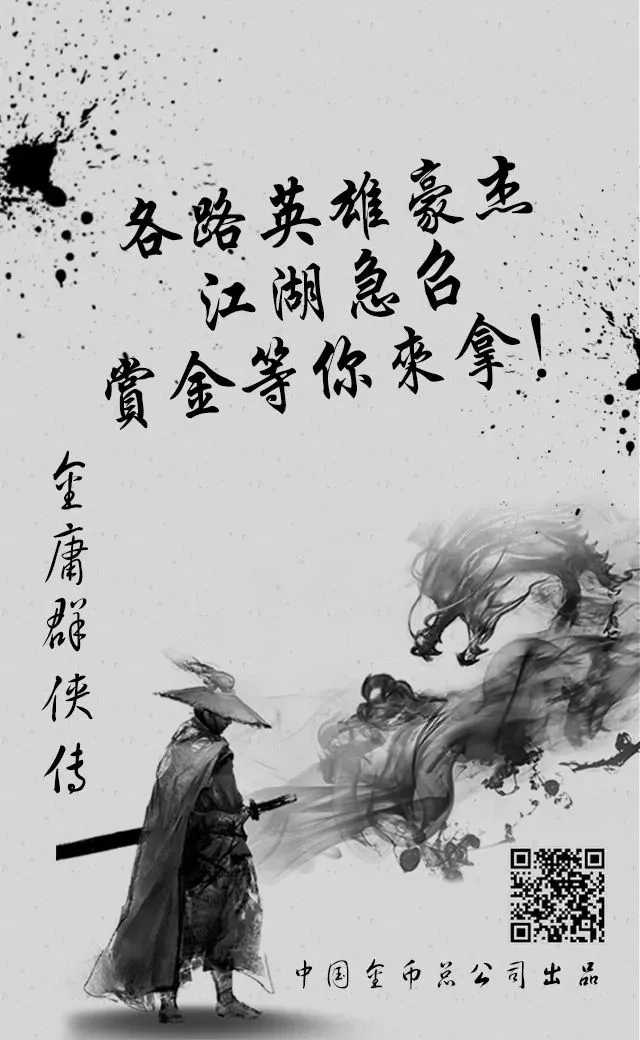 各路英雄豪杰
江湖急召
賞金等你來拿！
金庸群侠传
中国金币总公司出品